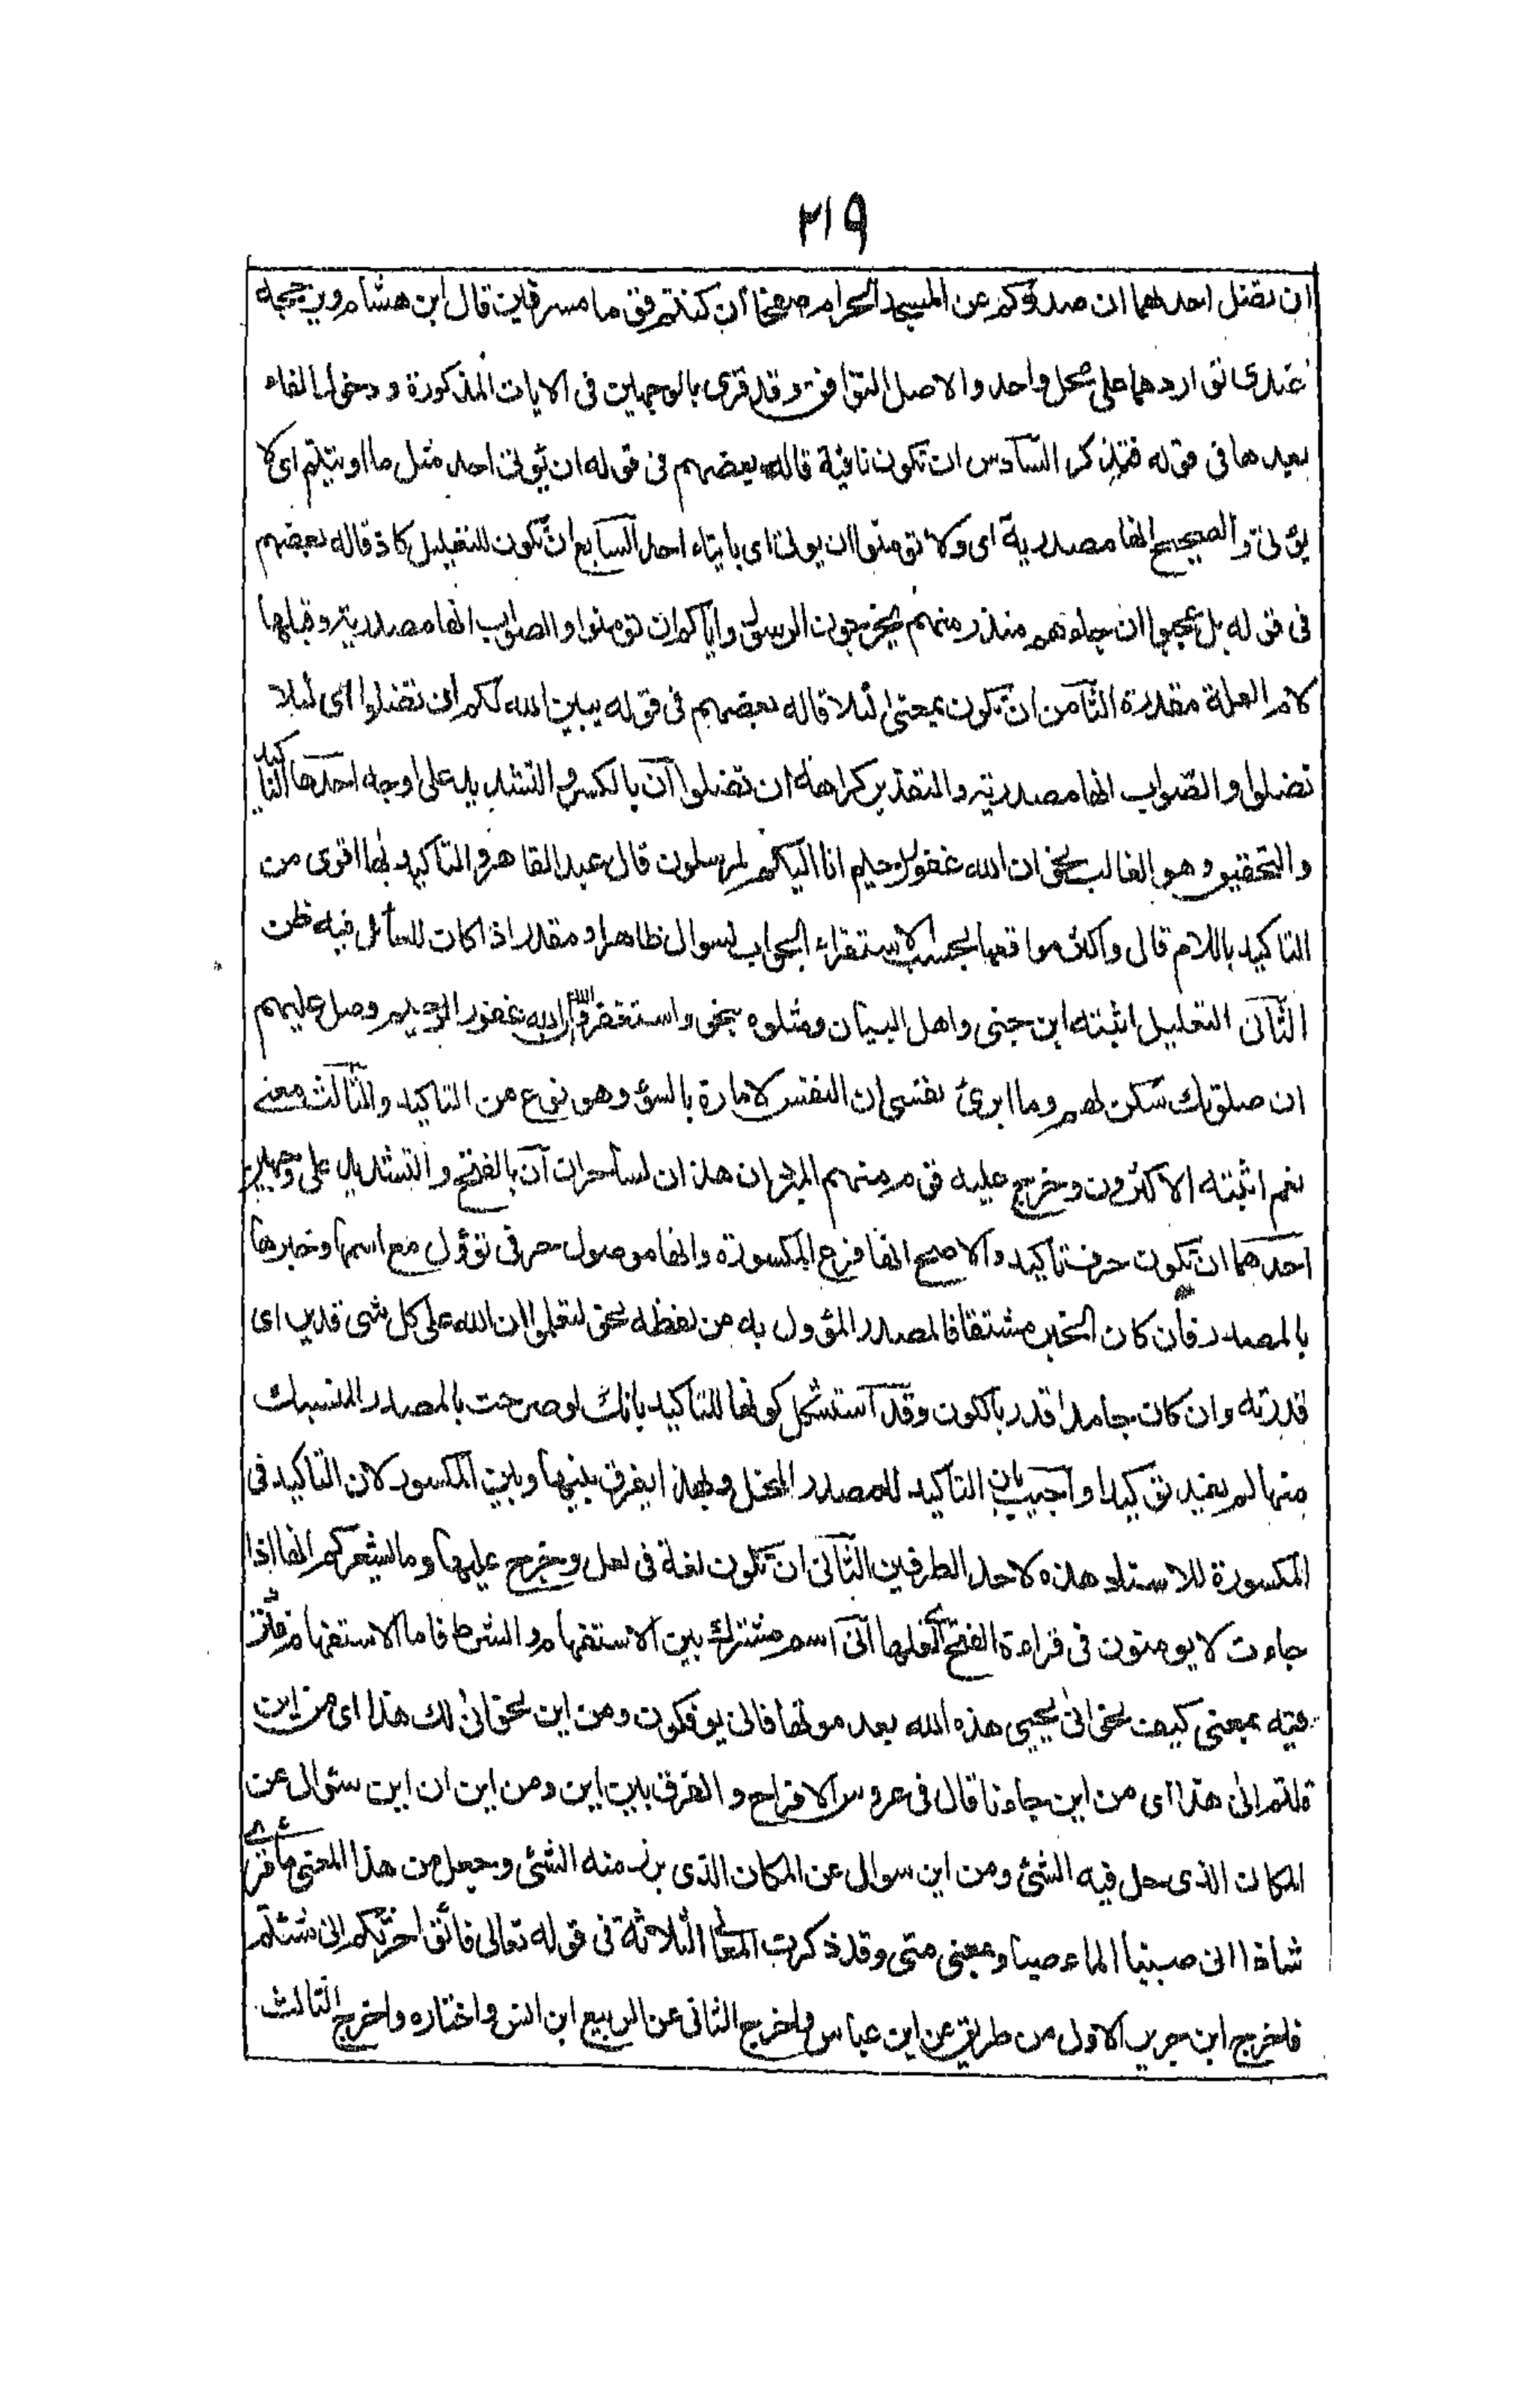 ٢١٩
ان تضل احدىهما ان صدوكم عن المسجد الحرام صفحا ان كنتم قوما مسرفين قال ابن هشام ويرجحه
عندى تواردهما على محل واحد والاصل التوافق وقد قرئ بالوجهين فى الايات المذكورة ودخول الفاء
بعدها فى قوله فتذكر السادس ان تكون نافية قاله بعضهم فى قوله ان يؤتى احد مثل ما اوتيتم اى لا
يؤتى والصحيح انها مصدرية اى ولا تؤمنوا ان يؤتى اى بايتاء احد السابع ان تكون للتعليل كاذ قاله بعضهم
فى قوله بل عجبوا ان جاءهم منذر منهم يخرجون الرسول واياكم ان تؤمنوا والصواب انها مصدرية وقبلها
لام العلة مقدرة الثامن ان تكون بمعنى لئلا قاله بعضهم فى قوله يبين الله لكم ان تضلوا اى لئلا
تضلوا والصواب انها مصدرية والتقدير كراهة ان تضلوا ان بالكسر والتشديد على اوجه احدها التاكيد
والتحقيق وهو الغالب نحو ان الله غفور رحيم انا اليكم لمرسلون قال عبد القاهر والتاكيد بها اقوى من
التاكيد باللام قال واكثر مواقعها بحسب الاستقراء الجواب لسوال ظاهر او مقدر اذا كان للسائل فيه ظن
الثانى التعليل اثبته ابن جنى واهل البيان ومثلوه بنحو واستغفروا الله ان الله غفور الرحيم وصل عليهم
ان صلوتك سكن لهم وما ابرئ نفسى ان النفس لامارة بالسوء وهو نوع من التاكيد والثالث معنى
نعم اثبته الاكثرون وخرج عليه قوم منهم المبرد ان هذان لساحران ان بالفتح والتشديد على وجهين
احدهما ان تكون حرف تاكيد والاصح انها فرع المكسورة وانها موصول حرفى تؤول مع اسمها وخبرها
بالمصدر فان كان الخبر مشتقا فالمصدر المؤول به من لفظه نحو لتعلموا ان الله على كل شئ قدير اى
قدرته وان كان جامدا قدر بالكون وقد استشكل كونها للتاكيد بانك لو صرحت بالمصدر المنسبك
منها لم يفد توكيدا واجيب بان التاكيد للمصدر المنحل وبهذا يفرق بينها وبين المكسور لان التاكيد فى
المكسورة للاسناد وهذه لاحد الطرفين الثانى ان تكون لغة فى لعل وخرج عليها وما يشعركم انها اذا
جاءت لا يومنون فى قراءة الفتح اى لعلها انى اسم مشترك بين الاستفهام والشرط فاما الاستفهام فترد
فيه بمعنى كيف نحو انى يحيى هذه الله بعد موتها فانى يؤفكون ومن اين نحو انى لك هذا اى من اين
قلتم انى هذا اى من اين جاءنا قال فى عروس الافراح والفرق بين اين ومن اين ان اين سئوال عن
المكان الذى حل فيه الشئ ومن اين سوال عن المكان الذى برز منه الشئ وجعل من هذا المعنى ما قرئ
شاذا انى صببنا الماء صبا وبمعنى متى وقد ذكرت المعانى الثلاثة فى قوله تعالى فاتوا حرثكم انى شئتم
فاخرج ابن جرير الاول من طريق عن ابن عباس واخرج الثانى عن الربيع ابن انس واختاره واخرج الثالث